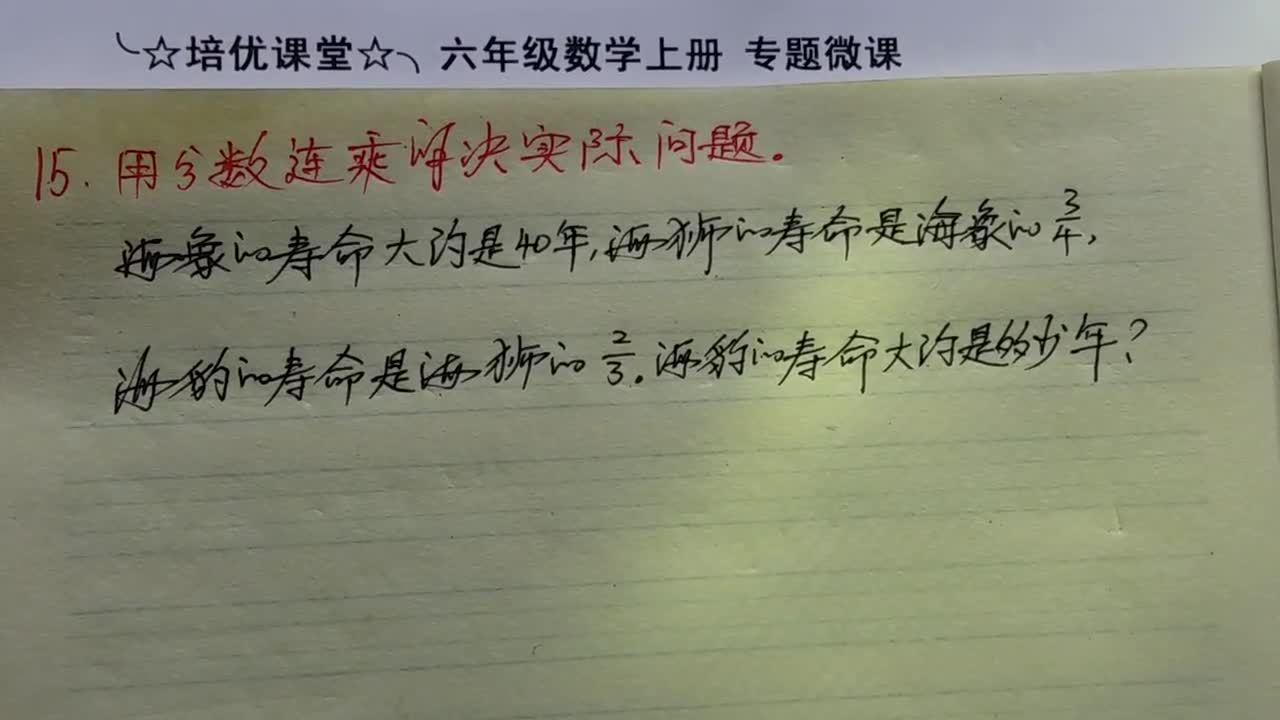 ☆培优课堂☆ 六年级数学上册 专题微课
15. 用分数连乘解决实际问题。
海象的寿命大约是40年,海狮的寿命是海象的3/4,
海豹的寿命是海狮的2/3。海豹的寿命大约是多少年?